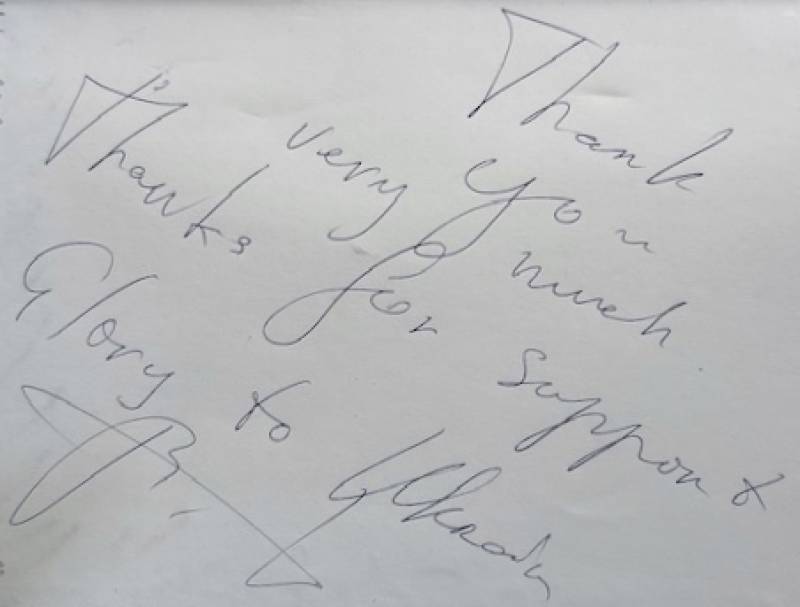 Thank
you
very much.
Thanks for support
Glory to Ukrain